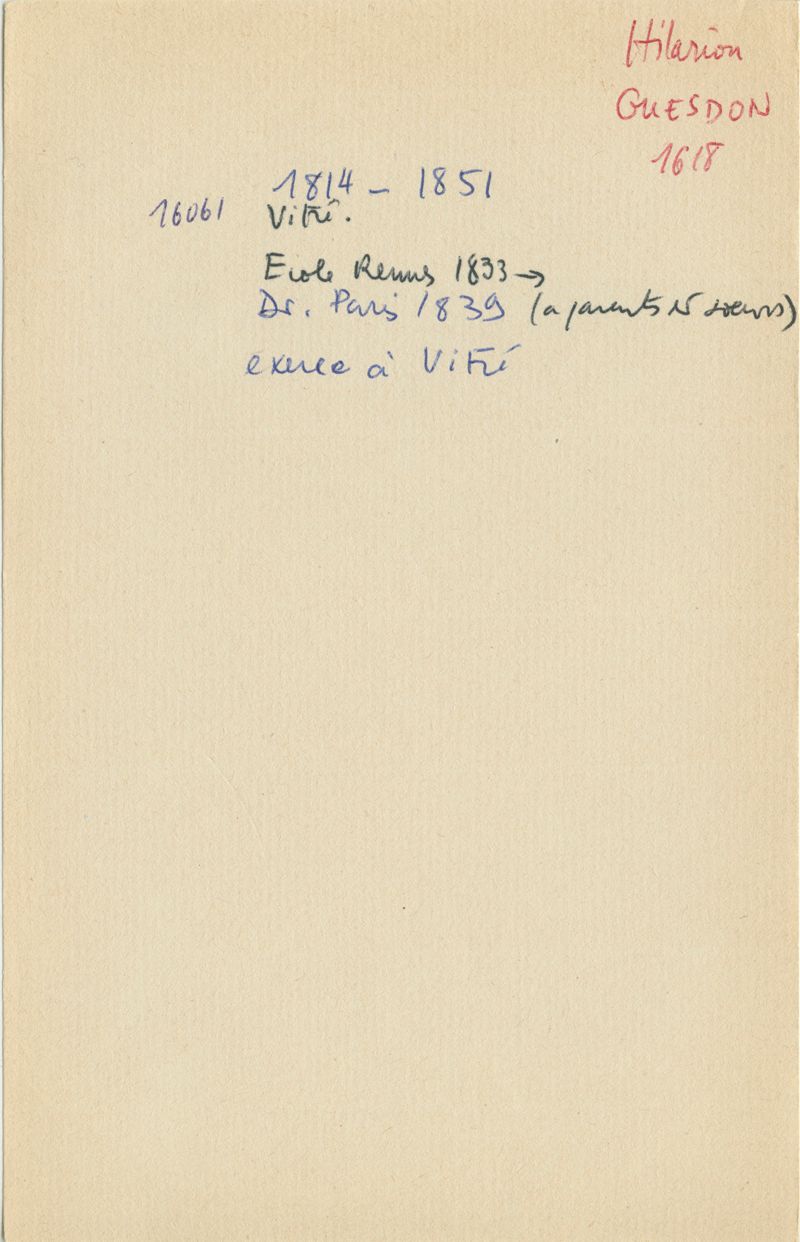 Hilarion
GUESDON
1618
1814 - 1851
16061 Vitré.
Ecole Rennes 1833 →
Dr. Paris 1839 (a parents et soeurs)
exerce à Vitré